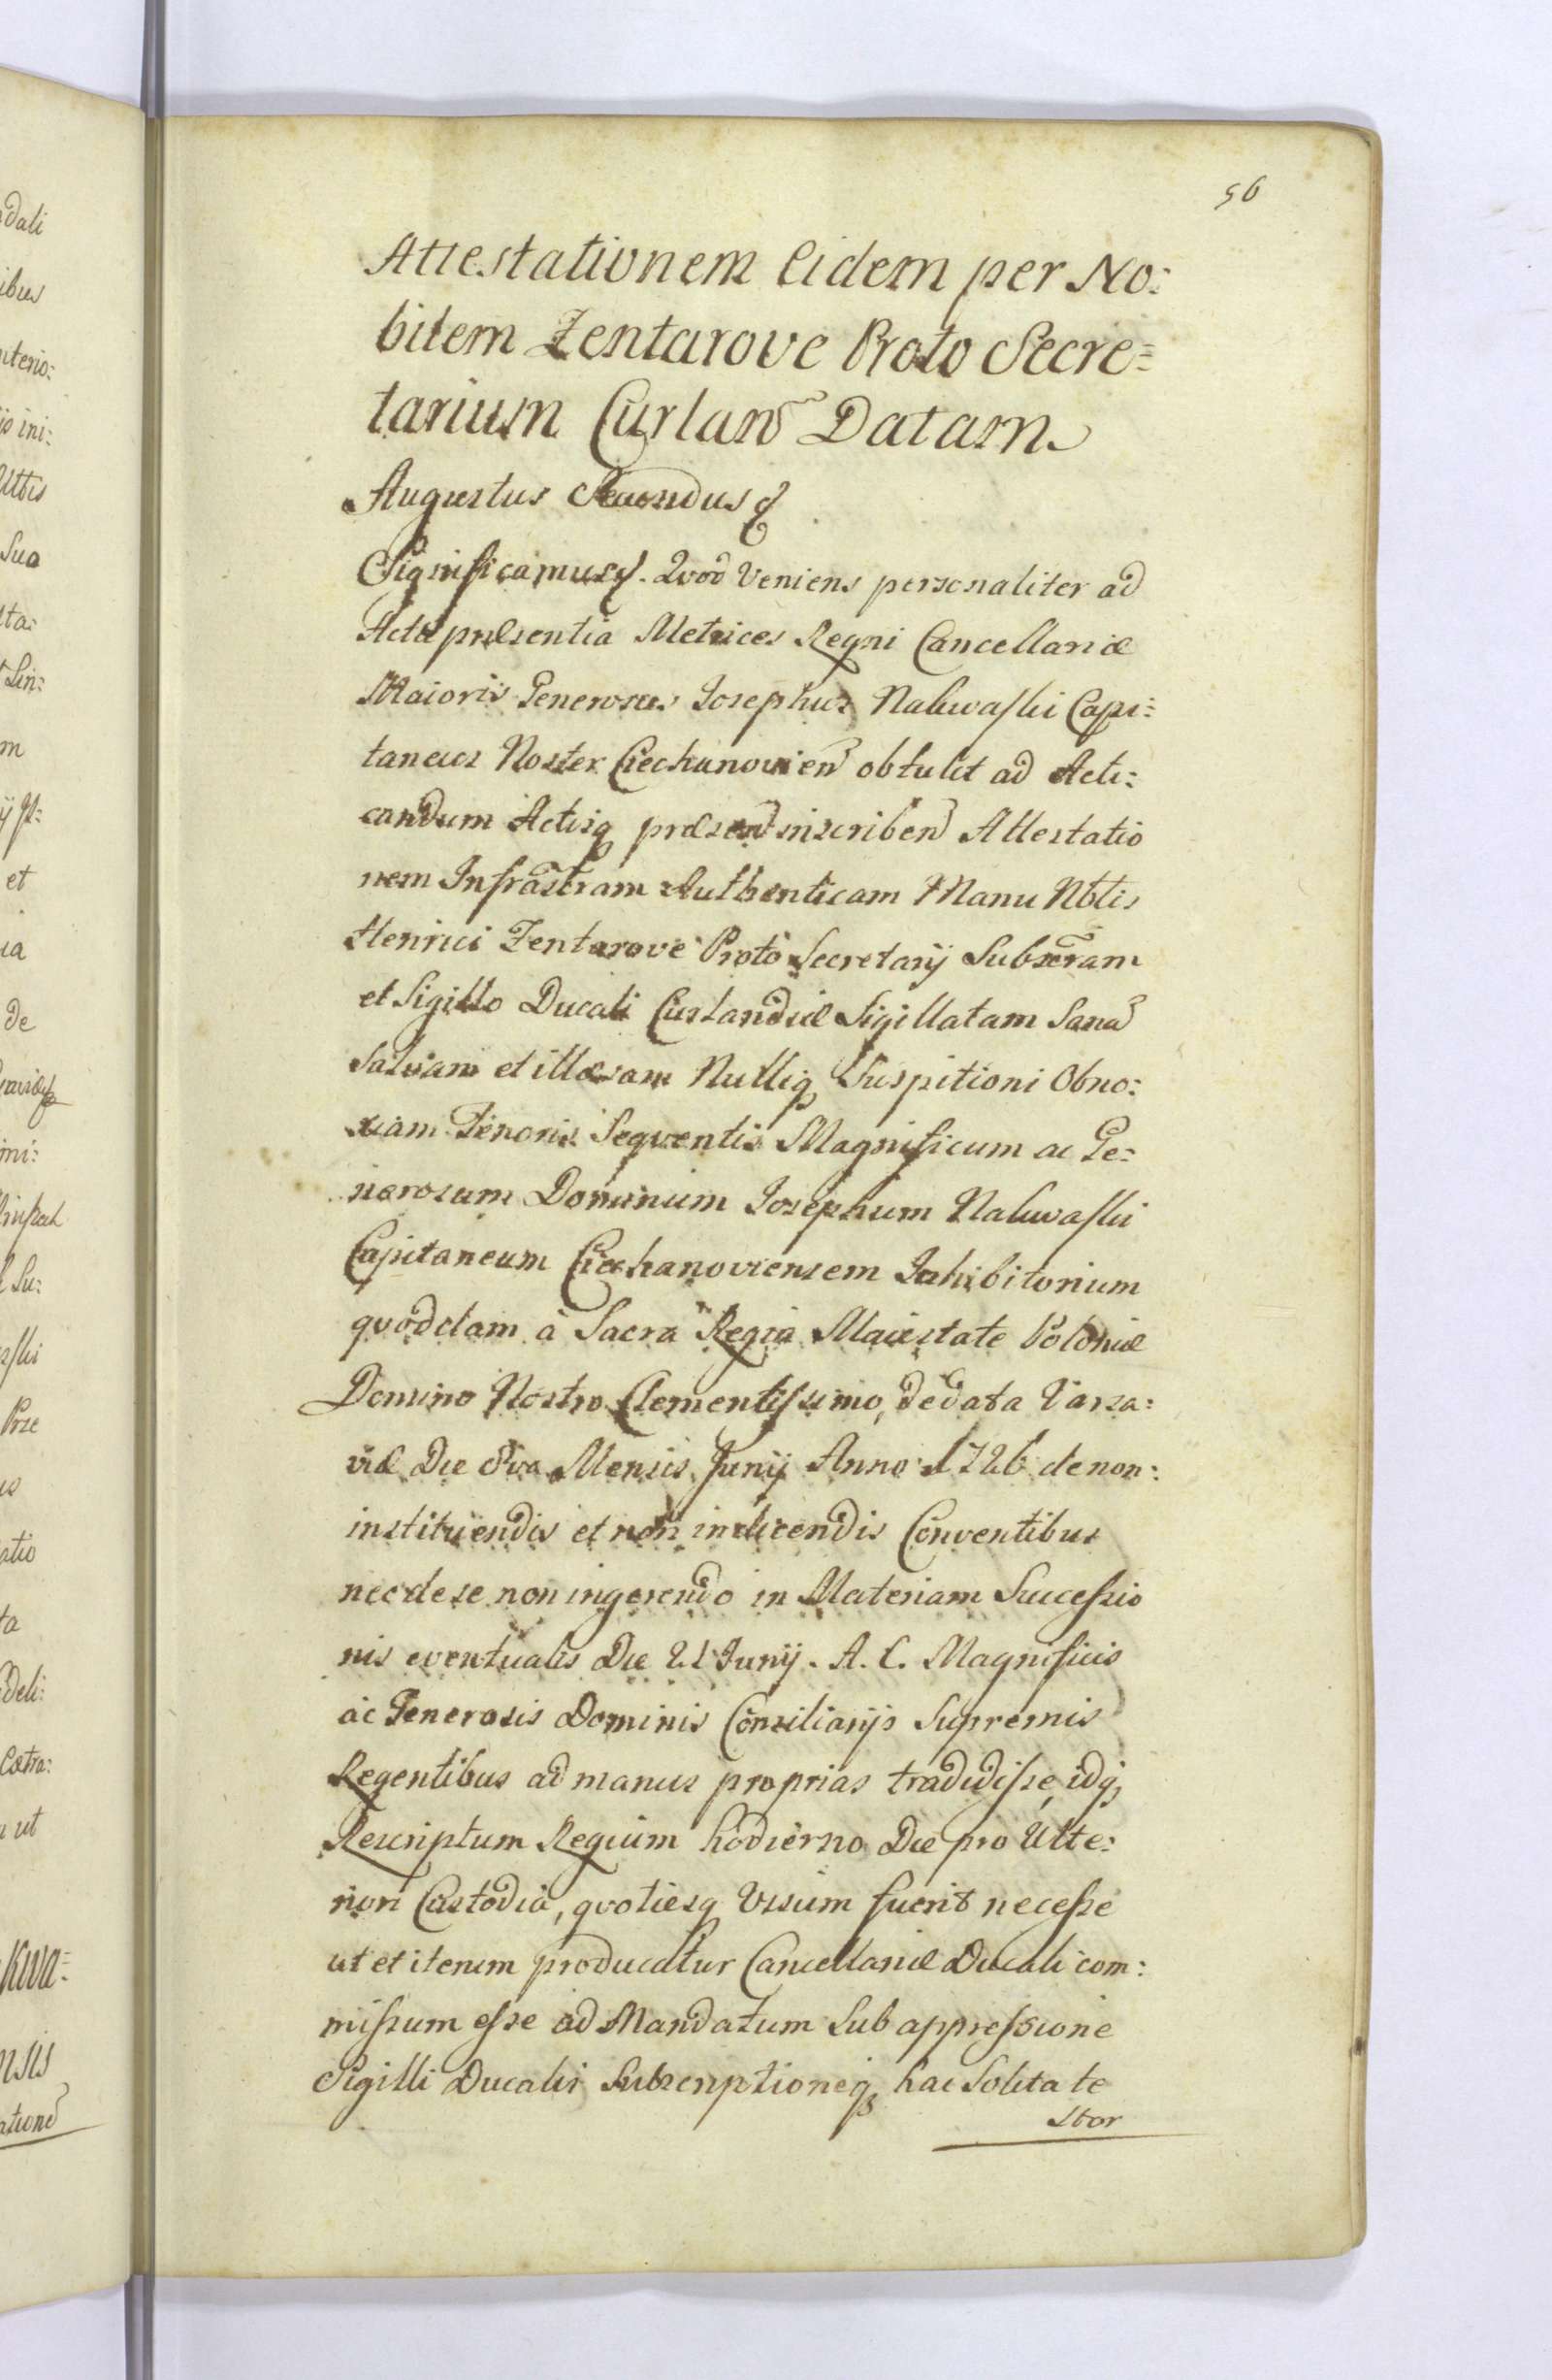 56
Attestationem Eidem per No:
bilem Zentarove Proto Secre=
tarium Curlan̄ Datam
Augustus Secundus &
Significamus &. Quod Veniens personaliter ad
Acta præsentia Metrices Regni Cancellariæ
Maioris Generosus Josephus Nakwaski Capi=
taneus Noster Ciechanovien̄ obtulit ad Acti:
candum Actisq præsen̄t inscriben̄ Attestatio
nem Infrãscram Authenticam Manu Nbtis
Henrici Zentarove Proto Secretarij Subscr̃am
et Sigillo Ducali Curlandiæ Sigillatam Sana̅
Salvam et illæsam Nulliq Suspitioni Obno:
xiam Tenoris Sequentis Magnificum ac Ge:
nerosum Dominum Josephum Nakwaski
Capitaneum Ciechanoviensem Inhibitorium
quoddam à Sacra Regia Maiestate Poloniæ
Domino Nostro Clementissimo, de data Varsa:
viæ Die 8va Mensis Junij Anno 1726 de non:
instituendis et non indicendis Conventibus
nec de se non ingerendo in Materiam Successio
nis eventualis Die 21 Junij. A. C. Magnificis
ac Generosis Dominis Consiliarijs Supremis
Regentibus ad manus proprias tradidisse, idq,
Rescriptum Regium hodierno Die pro Ulte:
riori Custodia, quotiesq Visum fuerit necesse
ut et iterum producatur Cancellariæ Ducali com:
missum esse ad Mandatum Sub appressione
Sigilli Ducalis Subscriptioneq hac Solita te
stor
dali
ibus
nterio:
is ini:
Sua
sta:
m
et
ia
de
mi:
Su:
Prze
us
atio
ta
deli:
ut
kwa:
nsis